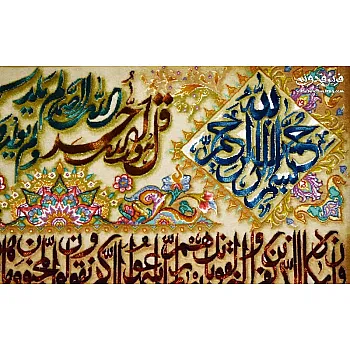 بسم الله الرحمن الرحيم
قل هو الله احد الله الصمد لم يلد و لم يولد
و ان يكاد الذين كفروا ليزلقونك بابصارهم لما سمعوا الذكر و يقولون انه لمجنون و ما هو